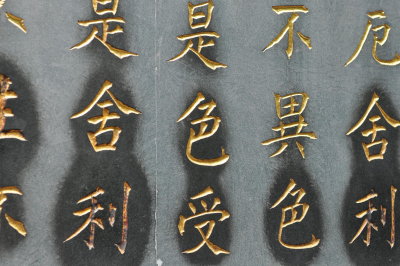 厄舍利
不異色
是色受
是舍利